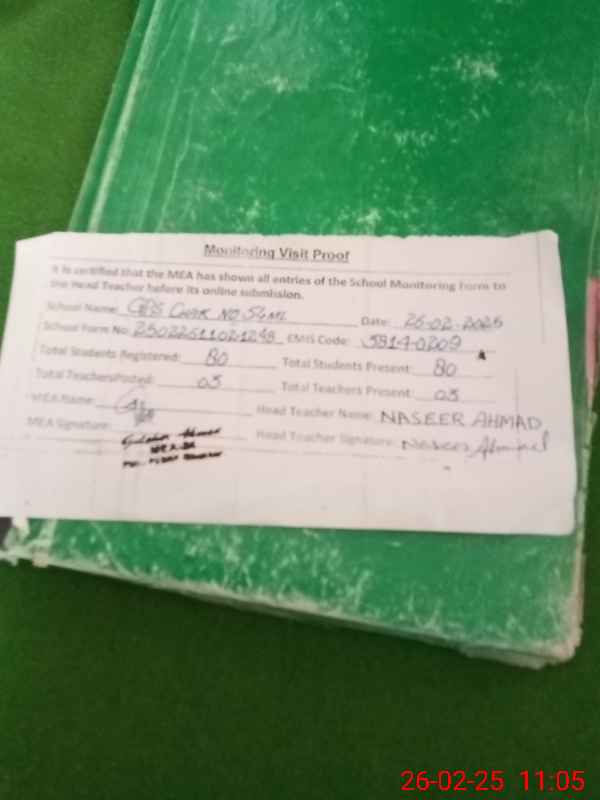 Monitoring Visit Proof
It is certified that the MEA has shown all entries of the School Monitoring Form to
the Head Teacher before its online submission.
School Name: GPS CHAK NO 54ML Date: 26-02-2025
School Form No: EMIS Code:
Total Students Registered: 80 Total Students Present: 80
Total TeachersPosted: 03 Total Teachers Present: 03
MEA Name: Head Teacher Name: NASEER AHMAD
MEA Signature: Head Teacher Signature: Naseer Ahmad
26-02-25 11:05